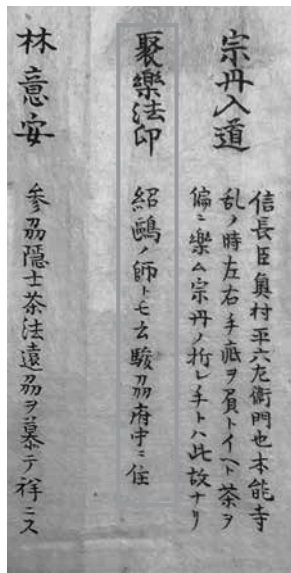 宗丹入道
信長臣奥村平六左衛門也本能寺
乱ノ時左右手疵ヲ負トイヘト茶ヲ
偏ニ樂ム宗丹ノ折レ手トハ此故ナリ
聚樂法印
紹鷗ノ師トモ云駿刕府中ニ住
林意安
参刕隠士茶法遠刕ヲ慕テ祥ニス